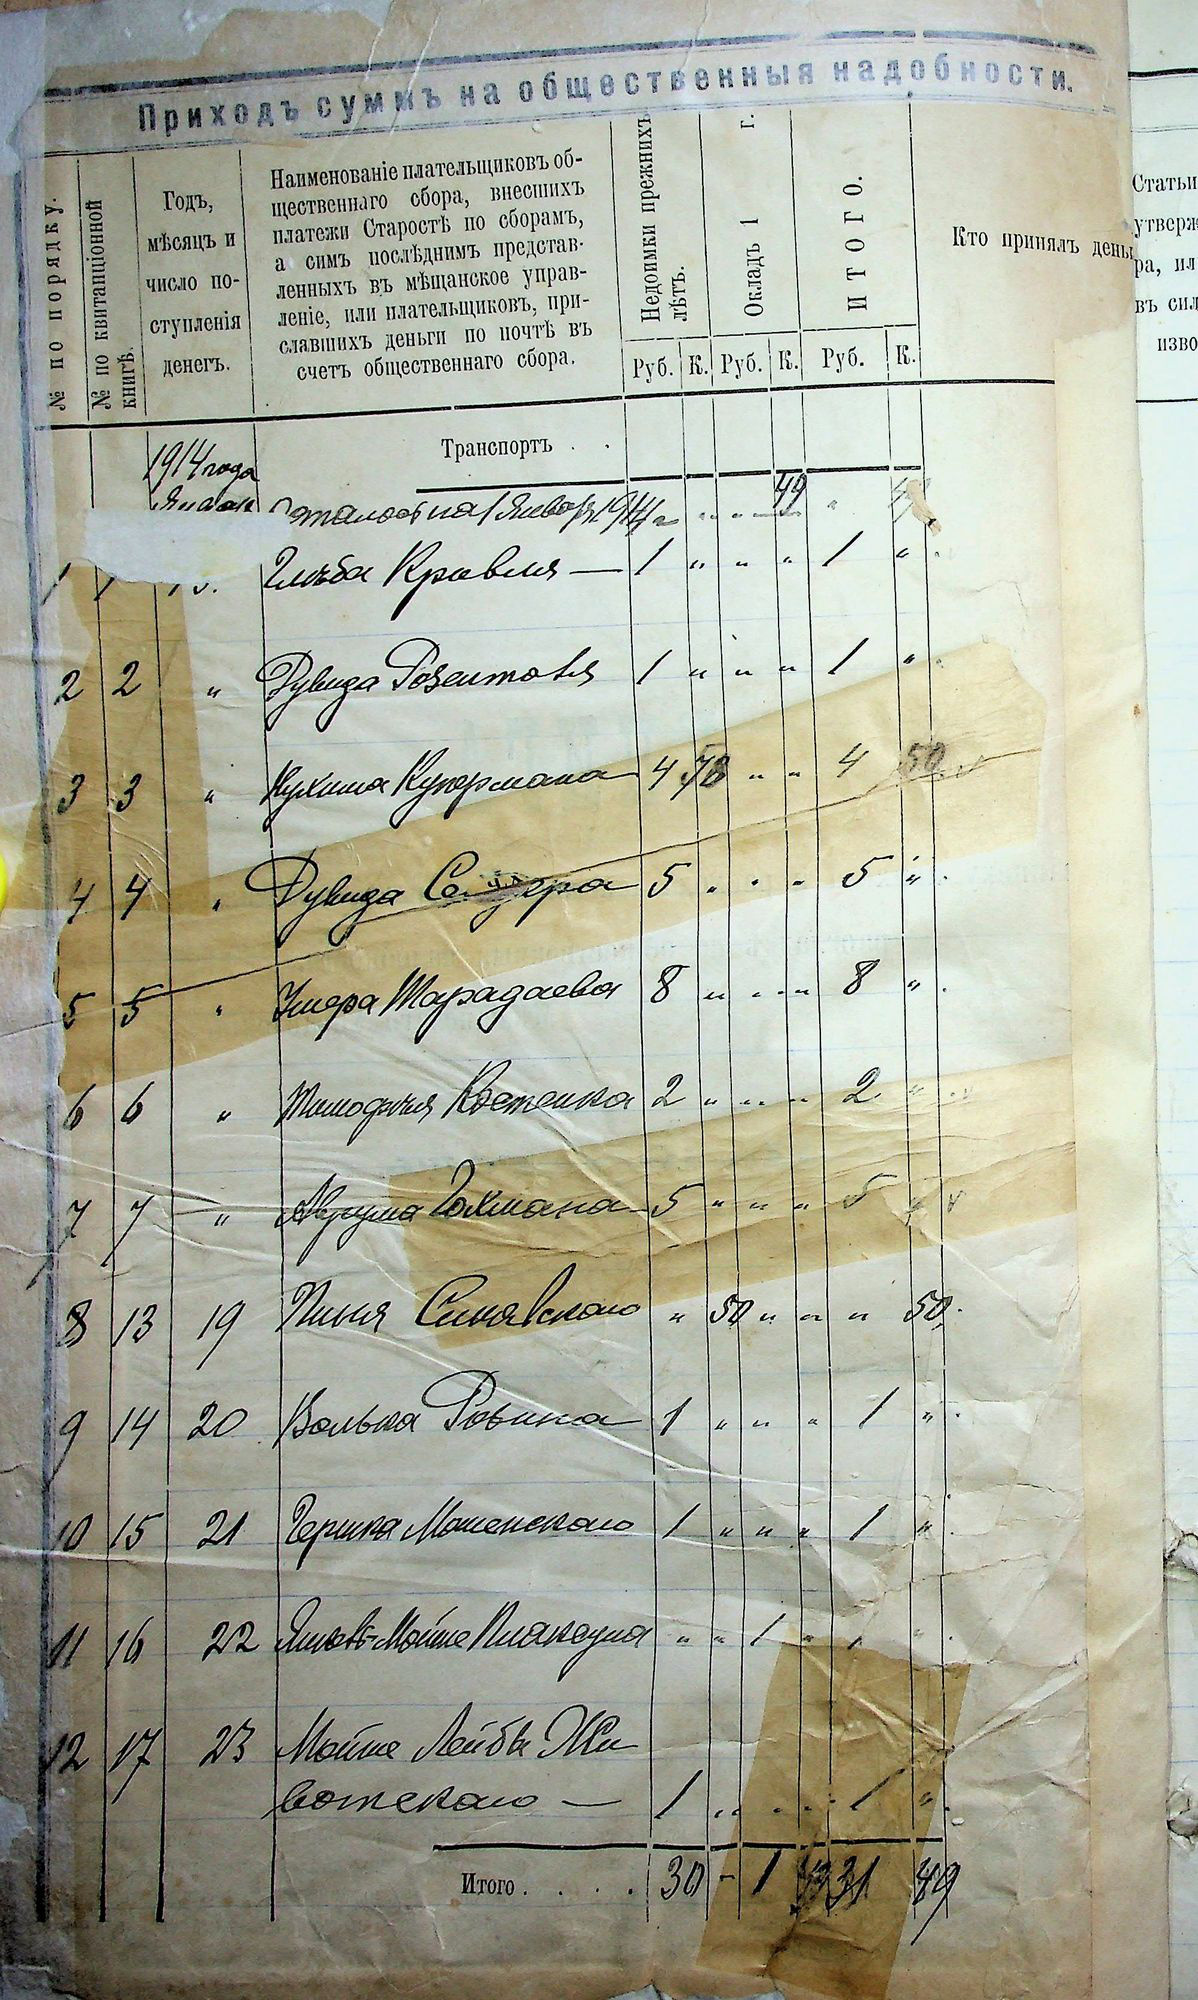 Приходъ суммъ на общественныя надобности.
№ по порядку.
№ по квитанціонной книгѣ.
Годъ,
мѣсяцъ и
число по-
ступленія
денегъ.
Наименованіе плательщиковъ об-
щественнаго сбора, внесшихъ
платежи Старостѣ по сборамъ,
а симъ послѣднимъ представ-
ленныхъ въ мѣщанское управ-
леніе, или плательщиковъ, при-
славшихъ деньги по почтѣ въ
счетъ общественнаго сбора.
Недоимки прежнихъ лѣтъ.
Окладъ 1 г.
ИТОГО.
Руб. К. Руб. К. Руб. К.
Кто принялъ день
Статьи
утверж
ра, ил
въ сил
изво
Транспортъ . .
1914 года
на 1 Января 1914 г. " " " 49 "
1 1 Кравля — 1 " " " 1 "
2 2 " Дувида 1 " " " 1 "
3 3 " Купермана 4 50 " " 4 50
4 4 " Дувида 5 " " " 5 "
5 5 " Умера Тарадаева 8 " " " 8 "
6 6 " Тимофтія Костенка 2 " " " 2 "
7 7 " Аврума Гохмана 5 " " " 5 "
8 13 19 Пиня Синявскаго " 50 " " " 50
9 14 20 Волька Ровина 1 " " " 1 "
10 15 21 Гершка Мошенскаго 1 " " " 1 "
11 16 22 Янкеля-Мойше " " 1 " 1 "
12 17 23 Мойше Лейбы Жи
вотскаго — 1 " " " 1 "
Итого . . . . 30 - 1 31 49